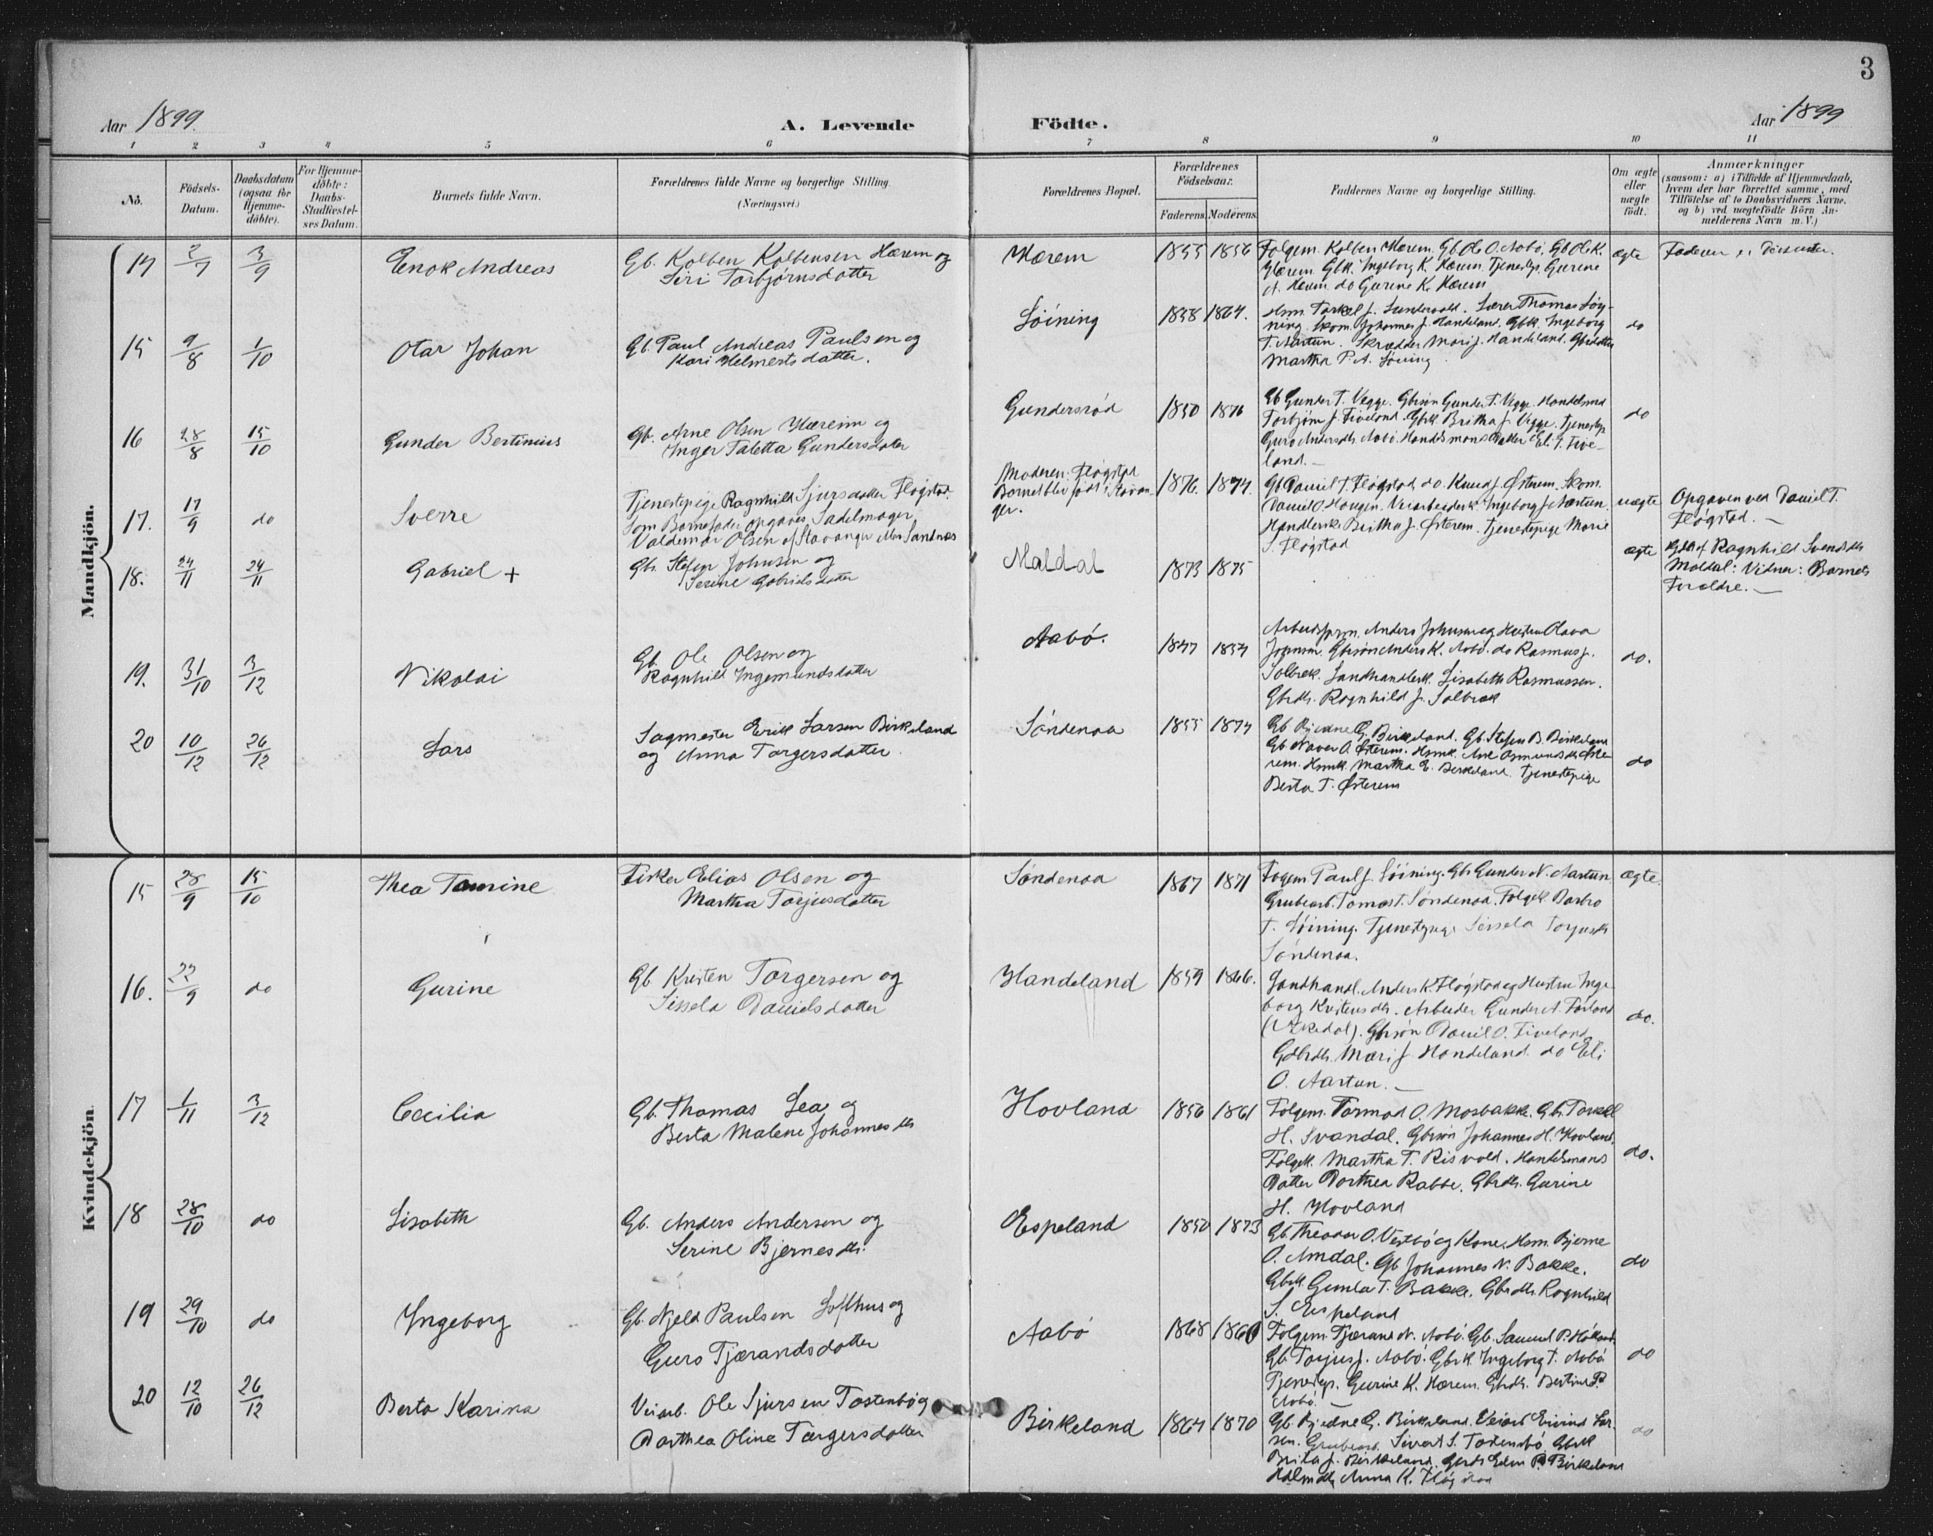 3
Aar 1899. A. Levende Fødte. Aar 1899
1 2 3 4 5 6 7 8 9 10 11
No. Födsels-Datum. Daabsdatum (ogsaa for Hjemme-döbte). For Hjemme-döbte: Daabs-Stadfæstel-ses Datum. Barnets fulde Navn. Forældrenes fulde Navne og borgerlige Stilling. (Næringsvei.) Forældrenes Bopæl. Forældrenes Födselsaar. Faderens. Moderens. Faddernes Navne og borgerlige Stilling. Om ægte eller uægte födt. Anmærkninger
(saasom: a) i Tilfælde af Hjemmedaab,
hvem der har forrettet samme, med
Tilföielse af to Daabsvidners Navne,
og b) ved uægtefödte Börn An-
melderens Navn m. V.)
Mandkjön.
14 2/7 3/9 Enok Andreas Gb. Kolben Kolbensen Hærem og
Siri Torbjørnsdatter
Hærem 1855 1856 Folgem. Kolben Hærem. Gb Ole O. Aabø. Gb Ole K.
Hærem Gbk. Ingeborg K. Hærem. Tjenestep. Gurine
A. Hærem do Gurine K. Hærem
ægte Faderen er Dissenter.
15 9/8 1/10 Otar Johan Gb. Paul Andreas Paulsen og
Kari Helmertsdatter.
Søining 1858 1864. Hsm. Torkel J. Sundevold. Lærer Thomas Søy-
ning. Skom. Johannes J. Handeland. Gbk. Ingeborg
T. Aartun. Skrædder Mari J. Handeland. Gbrdatter
Martha P. A. Søining.
do
16 28/8 15/10 Gunder Bertinius Gb. Arne Olsen Hærem og
Inger Taletta Gundersdater
Gundersrød 1850 1876 Gb Gunder T. Vegge. Gbrsøn Gunder T. Vegge. Handelsmd
Torbjørn J. Fiveland. Gbrk Britha J. Vegge. Tjenestep.
Guro Andersdtr. Aabø. Handelsmans Datter Eli T. Five-
land. —
do
17. 17/9 do Sverre Tjenestepige Ragnhild Sjursdatter Fløgstad.
Som Barnefader opgaves Sadelmager
Valdemar Olsen af Stavanger
Moderen: Fløgstad
Barnet blev født i Stavan-
ger.
1876. 1874. Gb Daniel T. Fløgstad do. Knud J. Østerem. Skom.
Daniel O. Haugen. Veiarbeidersk. Ingeborg J. Aartun.
Handlersk. Britha J. Østerem. Tjenestepige Marie
S. Fløgstad
uægte Opgaven ved Daniel T.
Fløgstad. —
18. 24/11 24/11 Gabriel + Gbr. Stefen Johnsen og
Serine Gabrielsdatter
Maldal 1873 1875 ægte Gdbt af Ragnhild Svendsdtr
Maldal: Vidner: Barnets
Forældre. —
19. 31/10 3/12 Nikolai Gb. Ole Olsen og
Ragnhild Ingemundsdatter
Aabø. 1847 1854 Arbeidsform. Anders Johnsen og Hustru Olava
Gbrsøn Anders K. Aabø. do Rasmus J.
Solbrek. Landhandlersk. Lisabeth Rasmussen.
Gbrdtr. Ragnhild J. Solbrek
do.
20 10/12 26/12 Lars Sagmester Erik Larsen Birkeland
og Anna Torgersdatter.
Søndenaa 1855 1874 Gb Bjedne G. Birkeland. Gb Stefen B. Birkeland
Gb Naver O. Østerem. Hsmk. Ane Osmundsdtr Øste
rem. Hsmk. Martha E. Birkeland. Tjenestepige
Berta T. Østerem
do
Kvindekjön.
15 28/9 15/10 Thea Tomine Fisker Elias Olsen og
Martha Torjusdatter
Søndenaa 1867 1871 Fogem Paul J. Søining. Gb. Gunder N. Aartun
Grubearb. Tomas T. Søndenaa. Folgek Barbro
T. Søining. Tjenestepige Sissela Torjusdtr
Søndenaa.
ægte.
16. 22/9 do Gurine Gb Kristen Torgersen og
Sissela Danielsdatter
Handeland 1859 1866. Landhandl. Anders K. Fløgstad og Hustru Inge-
borg Kristensdtr. Arbeider Gunder A. Førland
(Vikedal). Gbrsøn Daniel O. Fiveland
Gdbrdtr. Mari J. Handeland. do Eli
O. Aartun. —
do.
17 1/11 3/12 Cecilia Gb. Thomas Lea og
Berta Malene Johannesdtr
Hovland 1856 1861 Folgem. Tormod O. Mosbakk. Gb. Torkell
H. Svandal. Gbrsøn Johannes H. Hovland.
Folgek. Martha T. Risvold. Handelsmans
Datter Dorthea Rabbe. Gbrdtr. Gurine
H. Hovland
do.
18 28/10 do Lisabeth Gb. Anders Andersen og
Serine Bjernesdtr.
Espeland 1850 1873 Gb. Theodor O. Vestbø og Kone. Hsm. Bjerne
O. Amdal. Gb Johannes N. Bakke.
Gbrk. Gunla T. Bakke. Gbrdtr. Ragnhild
S. Espeland
do
19 29/10 do Ingeborg Gb. Njeld Paulsen Lofthus og
Guro Tjærandsdatter
Aabø 1868 1860 Folgem Tjærand N. Aabø. Gb. Samuel P. Høiland.
Gb Torjus J. Aabø. Gbrk Ingeborg T. Aabø
Tjenestep. Gurine K. Hærem. Gbrdtr. Bertine P.
Aabø. —
do
20 12/10 26/12 Berta Karina Veiarb. Ole Sjursen Tostenbø og
Dorthea Oline Torgersdatter
Birkeland 1864 1870 Gb. Bjedne G. Birkeland. Veiarb Eivind Lar-
sen. Grubearb. Sivert S. Tostensbø. Gbrk
Brita J. Birkeland. Gbrdtr Elen B. Birkeland
Anna K. Fløgstad
do